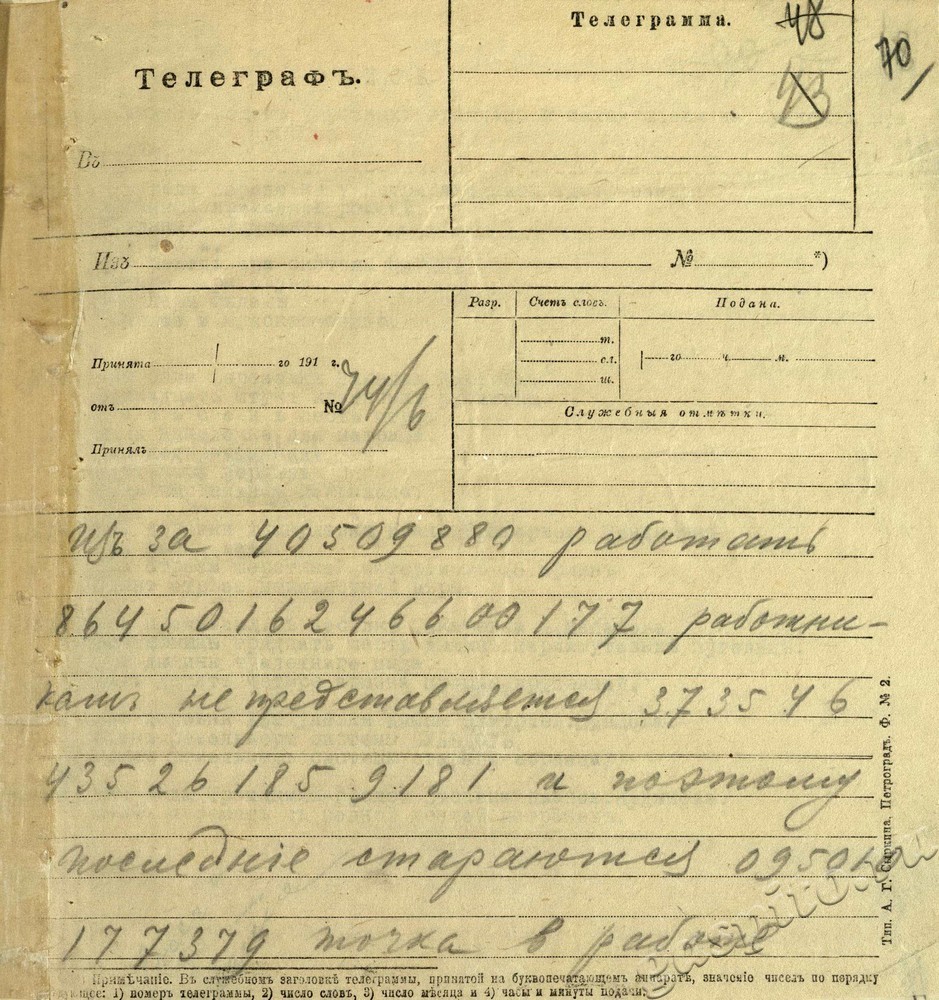 Телеграмма.
48
70
43
Телеграфъ.
Въ
Изъ
№ *)
Разр. Счетъ словъ. Подана.
т.
Принята го 191 г.
сл. го ч. м.
ш.
отъ №
74/6
Служебныя отмѣтки.
Принялъ
изъ за 40509880 работать
8645016246600177 работни-
камъ не представляется 3735 46
43526 185 9181 и поэтому
последніе стараются 0950
177379 точка в работе
Примѣчаніе. Въ служебномъ заголовкѣ телеграммы, принятой на буквопечатающемъ аппаратѣ, значеніе чиселъ по порядку
1) номеръ телеграммы, 2) число словъ, 3) число мѣсяца и 4) часы и минуты подачи.
Тип. А. Г. Сыркина, Петроградъ. Ф. № 2.